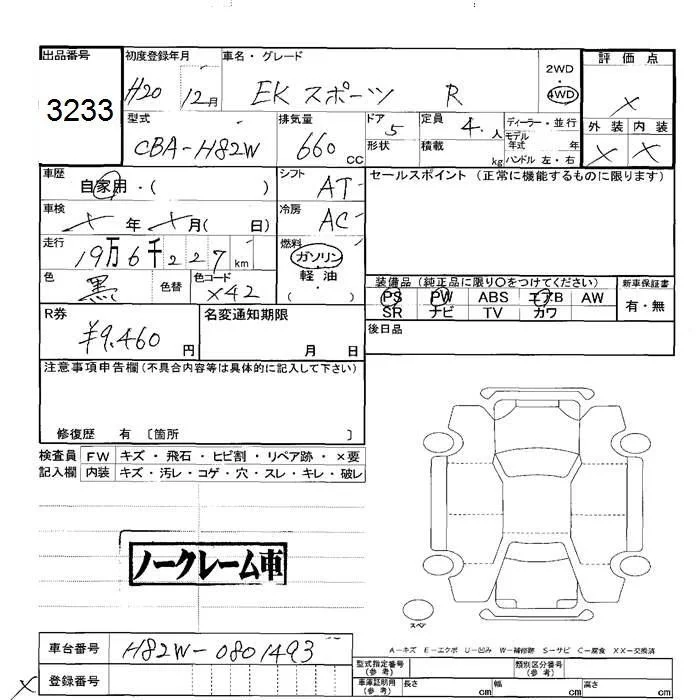 出品番号 初度登録年月 車名・グレード 評価点
3233 H20 12月 EK スポーツ R 2WD・4WD X
型式 排気量 ドア 5 定員 4. 人 ディーラー・並行 外装 内装
CBA-H82W 660 cc 形状 積載 kg モデル年式 年 ハンドル 左・右 X X
車歴 自家用・( ) シフト AT セールスポイント (正常に機能するものに限ります)
車検 X 年 X 月( 日) 冷房 AC
走行 19万6千227km 燃料 ガソリン
軽油
( ・ )
色 黒 色替 色コード X42
装備品 (純正品に限り○をつけてください) 新車保証書
PS PW ABS エアB AW 有・無
SR ナビ TV カワ
R券 ¥9,460 円 名変通知期限 月 日 後日品
注意事項申告欄(不具合内容等は具体的に記入して下さい)
修復歴 有 〔箇所 〕
検査員 FW キズ・飛石・ヒビ割・リペア跡・×要
記入欄 内装 キズ・汚レ・コゲ・穴・スレ・キレ・破レ
ノークレーム車
スペア
A−キズ E−エクボ U−凹み W−補修跡 S−サビ C−腐食 XX−交換済
車台番号 H82W-0801493
型式指定番号(参考) 類別区分番号(参考)
X 登録番号
車庫証明用(参考) 長さ cm 幅 cm 高さ cm